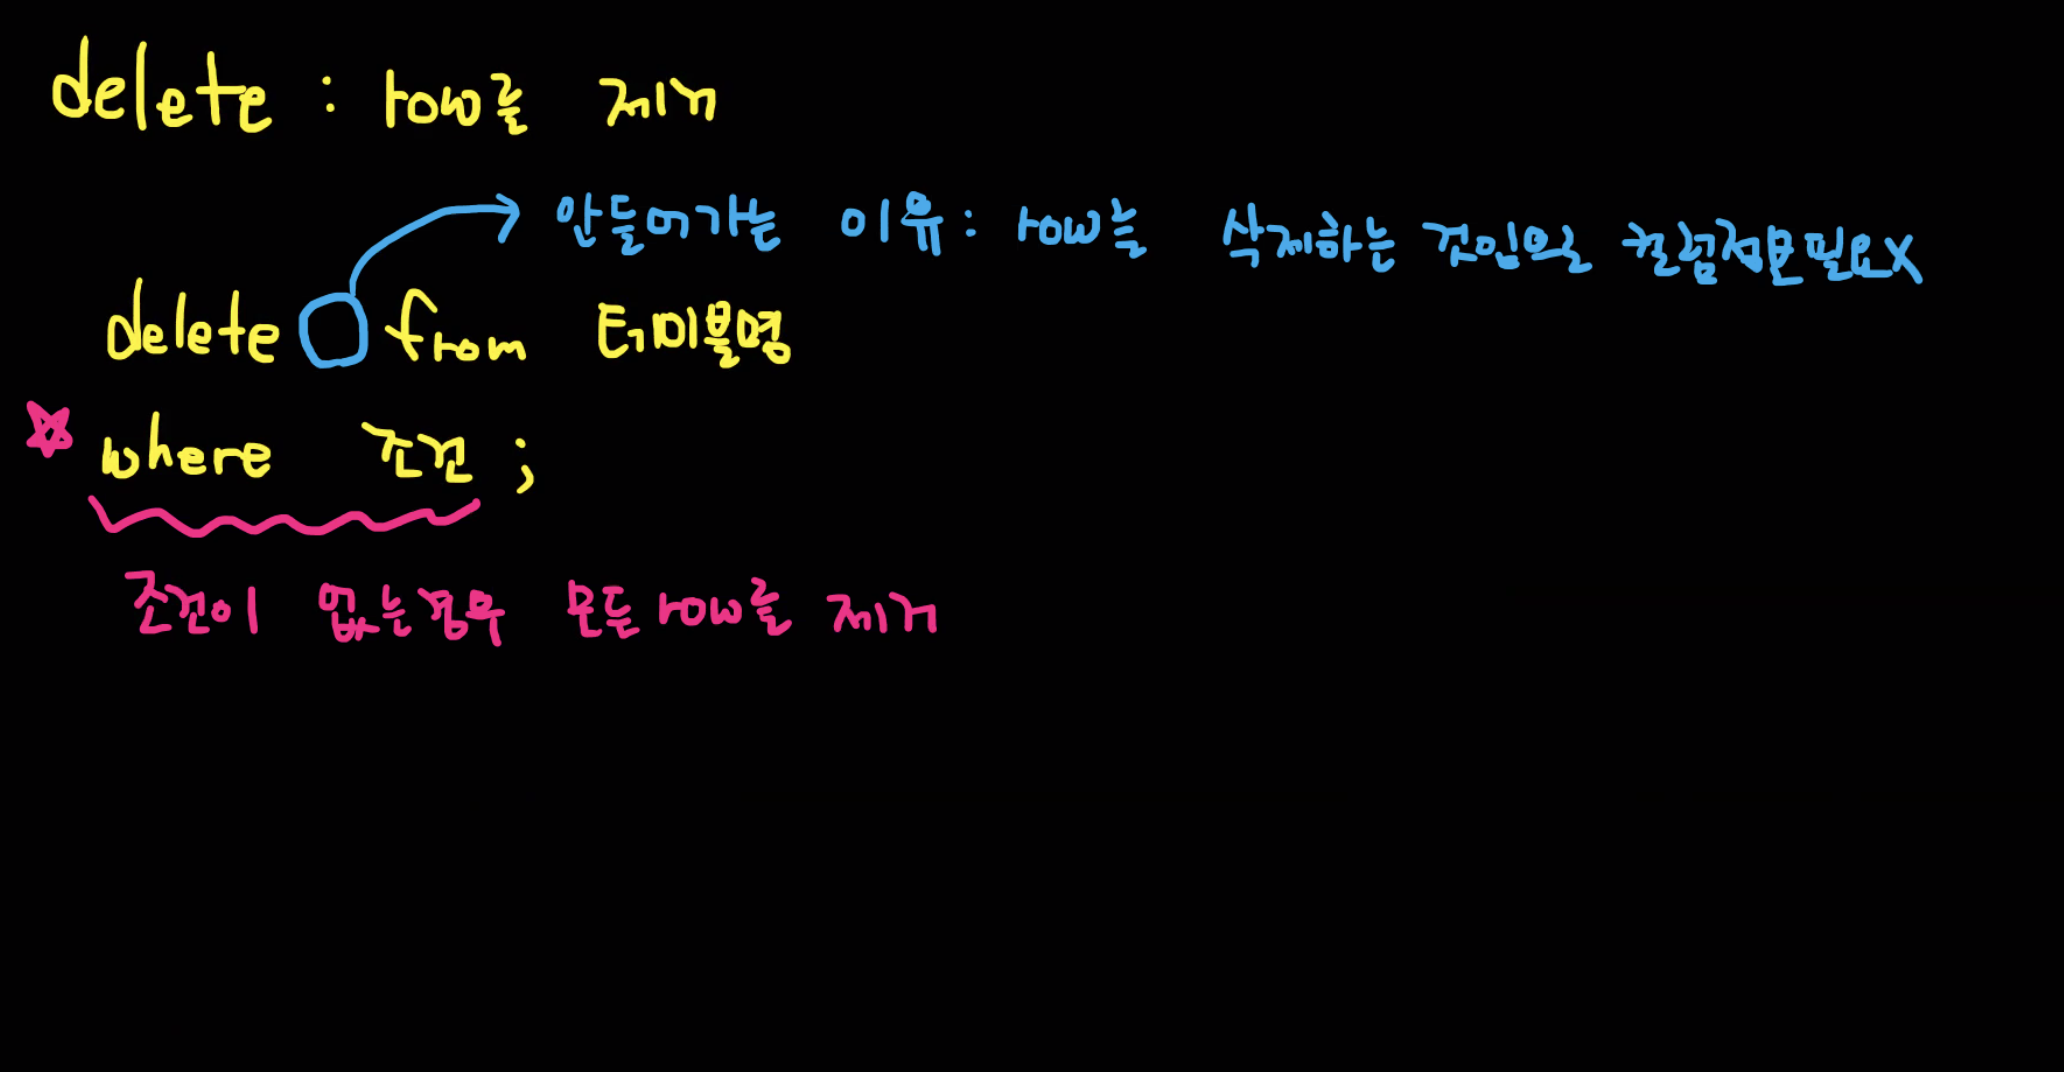 delete : row를 제거
안들어가는 이유 : row를 삭제하는 것임으로 컬럼정보필요X
delete from 테이블명
where 조건 ;
조건이 없는경우 모든 row를 제거